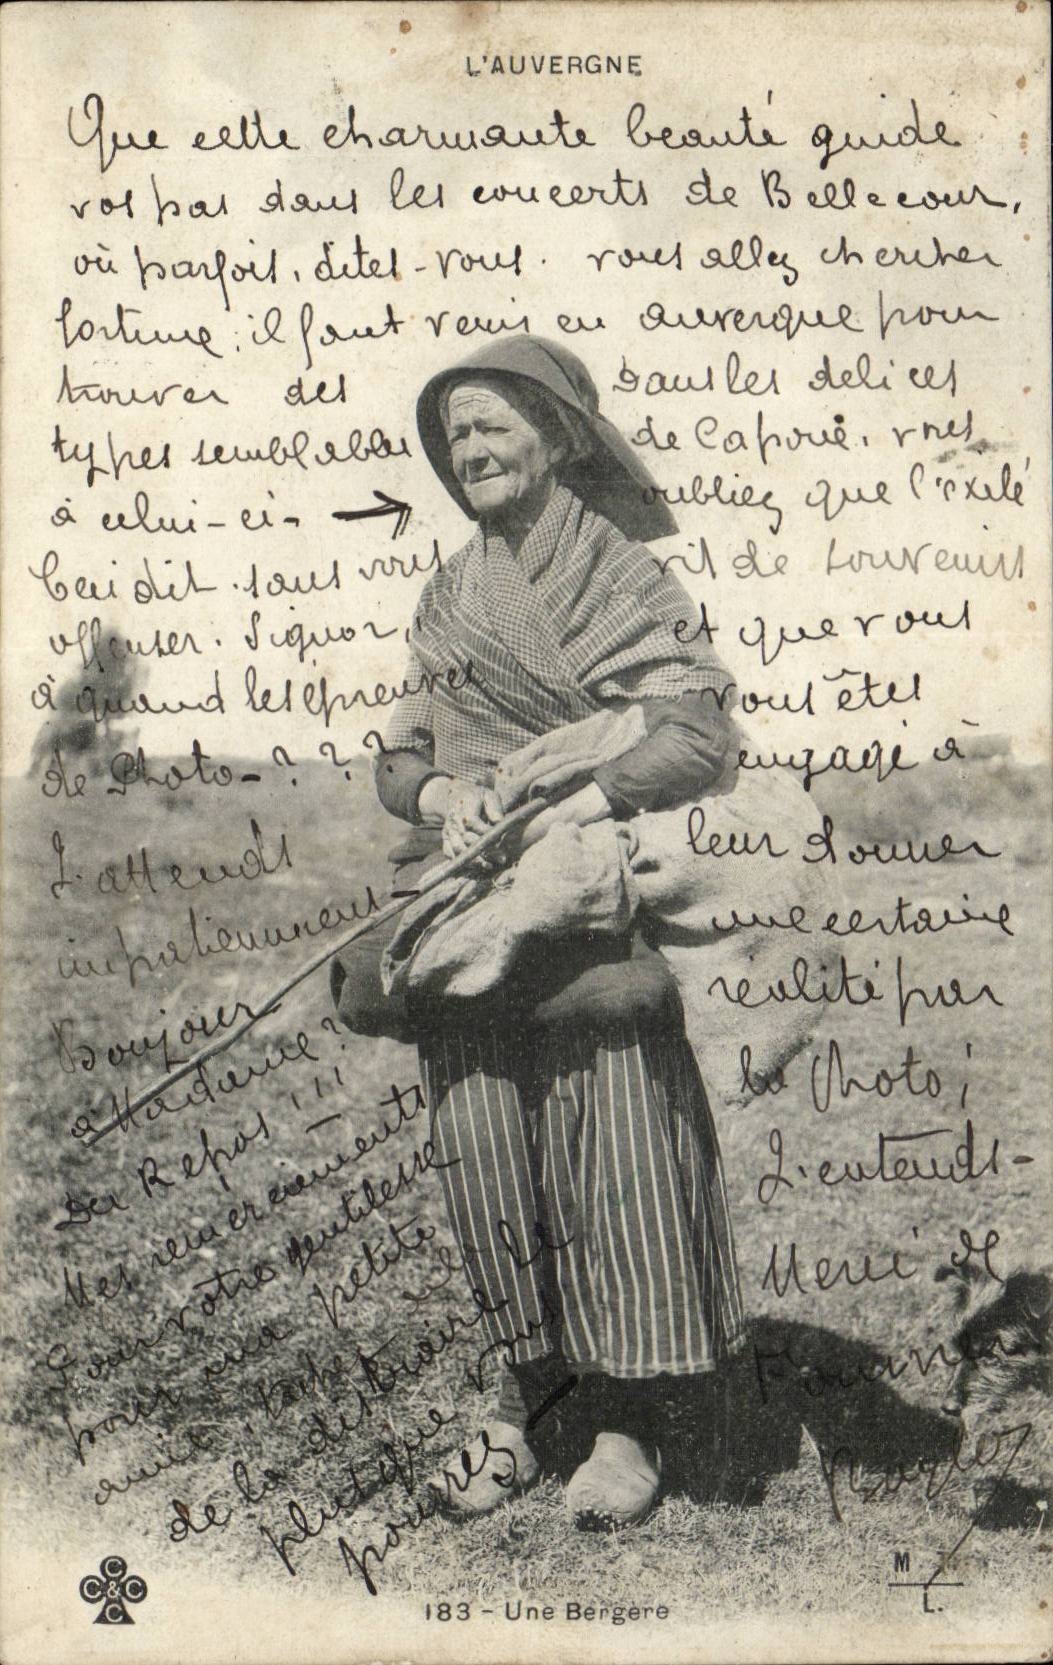 L'AUVERGNE
Que cette charmante beauté guide
vos pas dans les concerts de Bellecour,
où parfois, dites-vous. vous allez chercher
fortune; il faut venir en auvergne pour
trouver des
types semblables
à celui-ci-
Ceci dit. sans vous
offenser. Signor,
à quand les épreuves
de Photo-? ? ?
J'attends
impatiemment
Bonjour
à Madame?
Du Repos!!!
Mes remerciements
Pour votre gentillesse
pour ma petite
amie, tachez de
de la distraire le
plus que vous
pourrez
Dans les delices
de Capoue, vous
oubliez que l'exilé
vit de souvenirs
et que vous
vous êtes
engagé à
leur donner
une certaine
réalité par
la Photo;
J'entends-
Merci de
C C & C C
M
L.
183 - Une Bergère